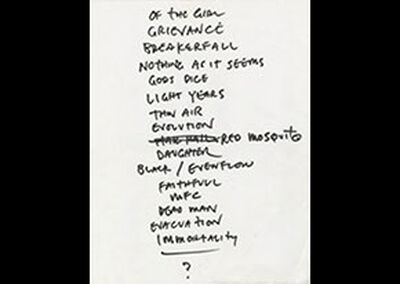 OF THE GIRL
GRIEVANCE
BREAKERFALL
NOTHING AS IT SEEMS
GODS DICE
LIGHT YEARS
THIN AIR
EVOLUTION
RED MOSQUITO
DAUGHTER
BLACK / EVENFLOW
FAITHFULL
MFC
DEAD MAN
EVACUATION
IMMORTALITY
?